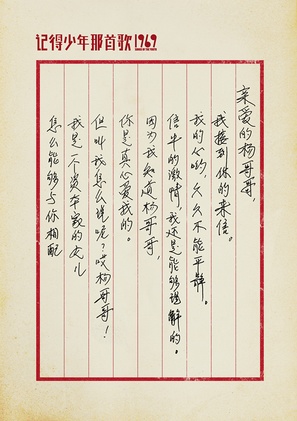 记得少年那首歌1969
亲爱的杨哥哥，
我接到你的来信。
我的心哟，久久不能平静。
信中的激情，我还是能够理解的。
因为我知道杨哥哥，
你是真心爱我的。
但叫我怎么说呢？哎杨哥哥！
我是一个资本家的女儿
怎么能够与你相配